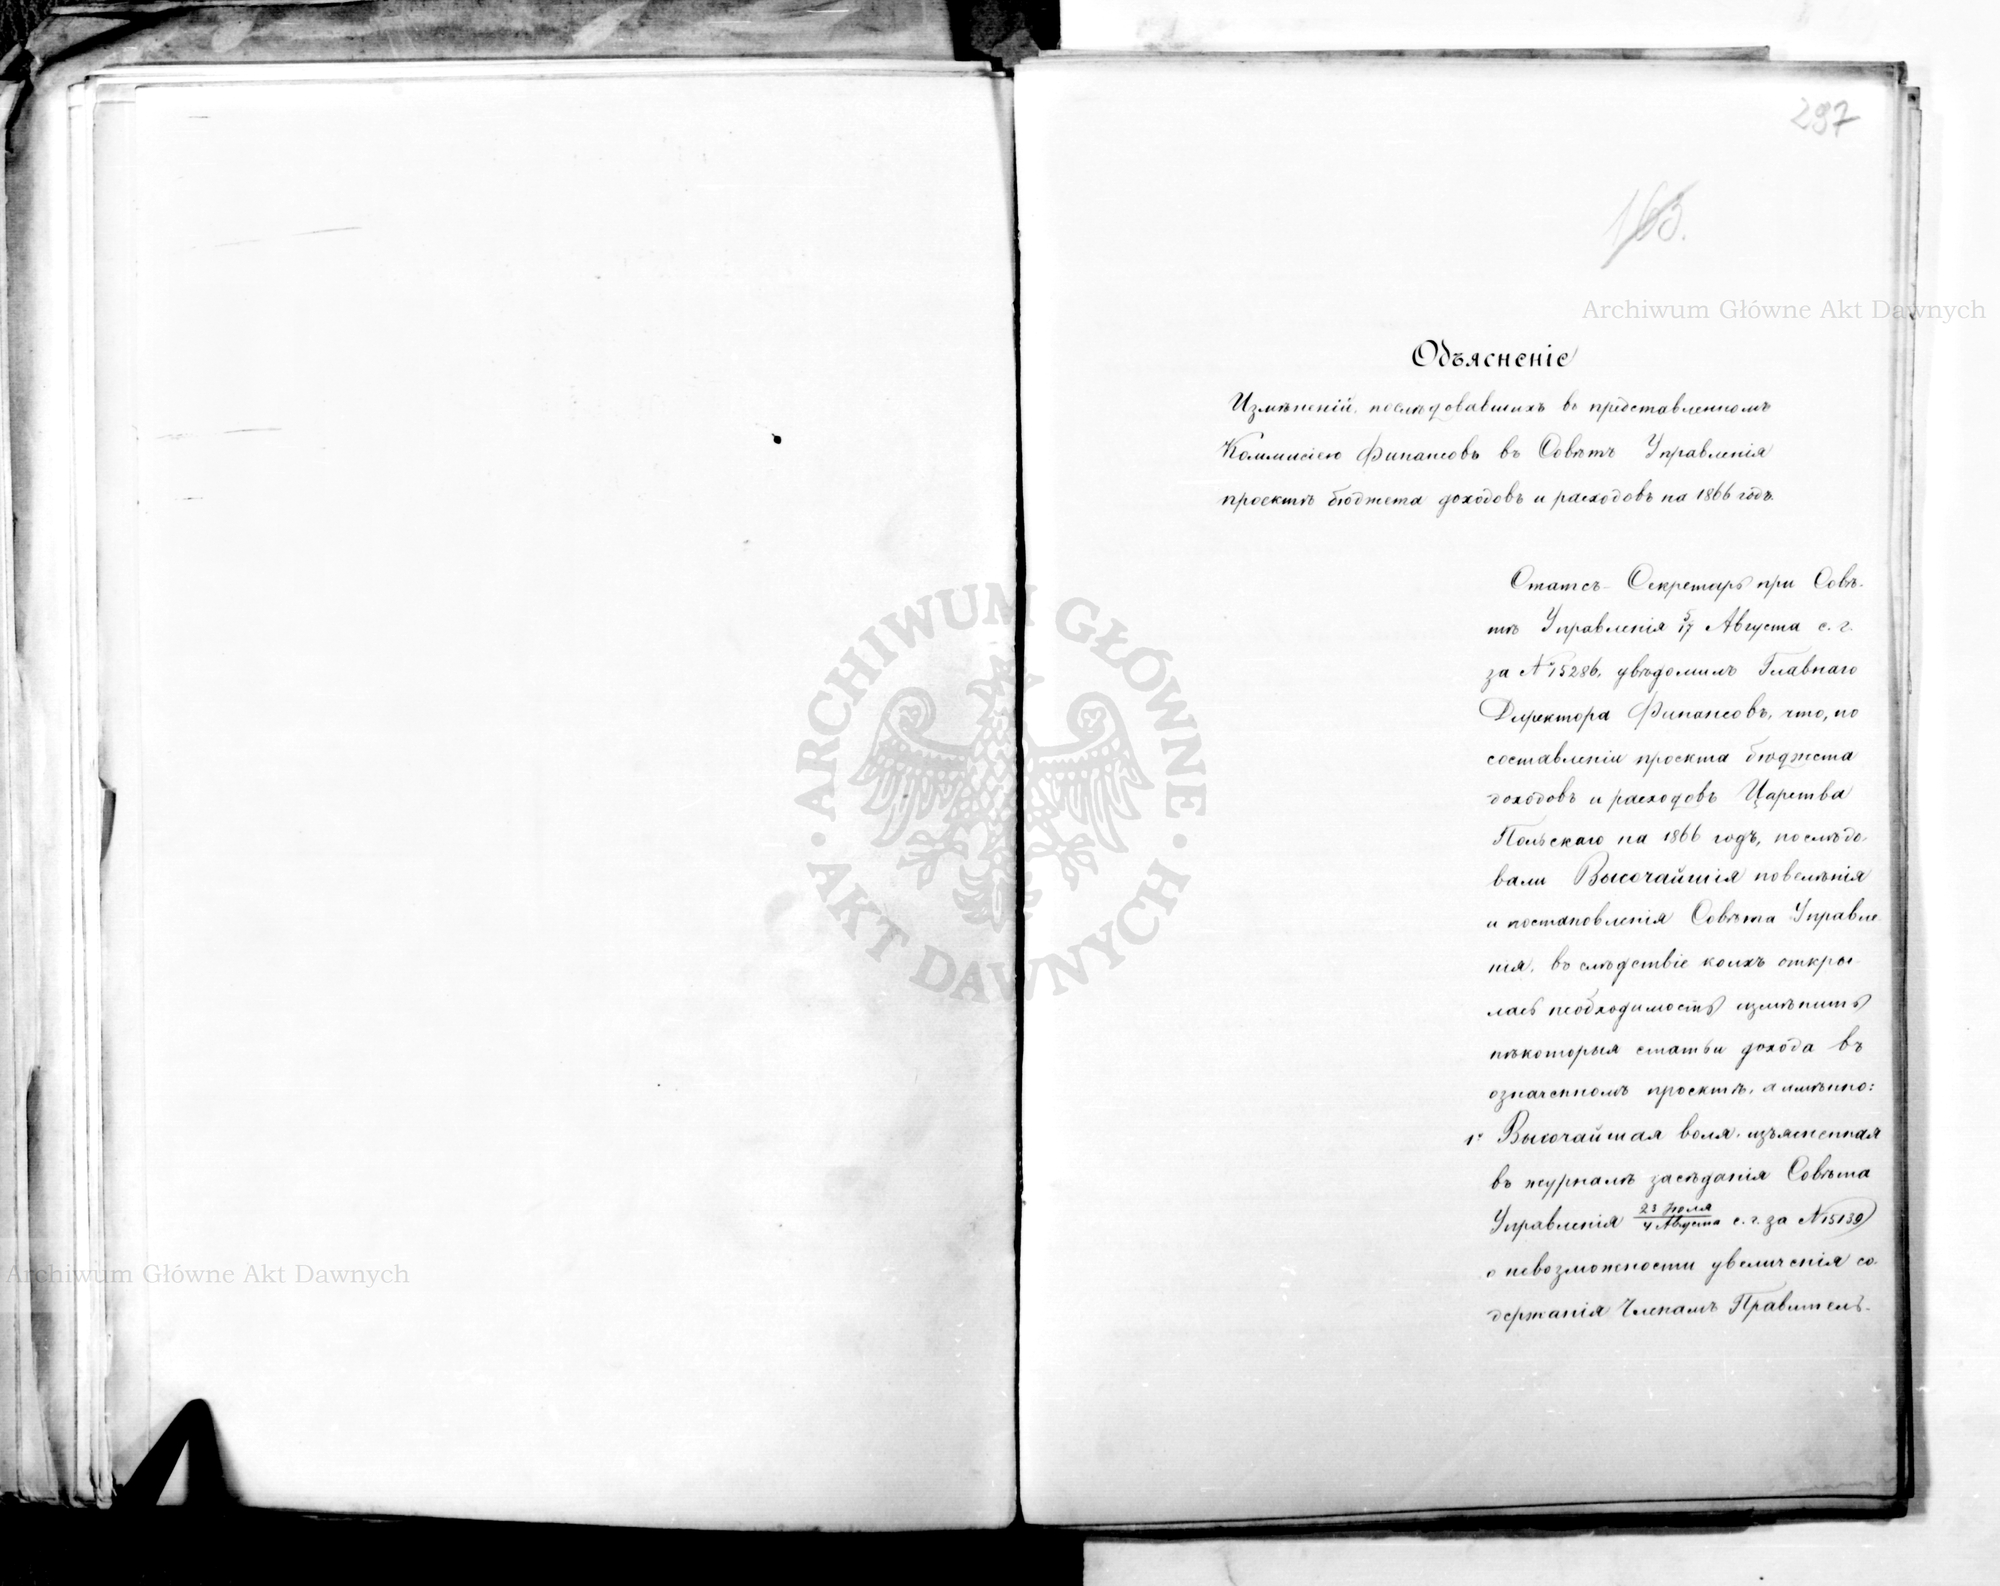 297
163.
Archiwum Główne Akt Dawnych
Объясненіе
Измѣненій, послѣдовавшихъ въ представленномъ
Коммисіею Финансовъ въ Совѣтъ Управленія
проектѣ бюджета доходовъ и расходовъ на 1866 годъ.
Статсъ-Секретарь при Совѣ-
тѣ Управленія 5/17 Августа с. г.
за № 15286, увѣдомилъ Главнаго
Директора Финансовъ, что, по
составленіи проекта бюджета
доходовъ и расходовъ Царства
Польскаго на 1866 годъ, послѣдо-
вали Высочайшія повелѣнія
и постановленія Совѣта Управле-
нія, въ слѣдствіе коихъ откры-
лась необходимость измѣнить
нѣкоторыя статьи дохода въ
означенномъ проектѣ, а имѣнно:
1е Высочайшая воля, изъясненная
въ журналѣ засѣданія Совѣта
Управленія 23 Іюля/4 Августа с. г. за № 15139)
о невозможности увеличенія со-
держанія Членамъ Правитель-
ARCHIWUM GŁÓWNE
AKT DAWNYCH
Archiwum Główne Akt Dawnych